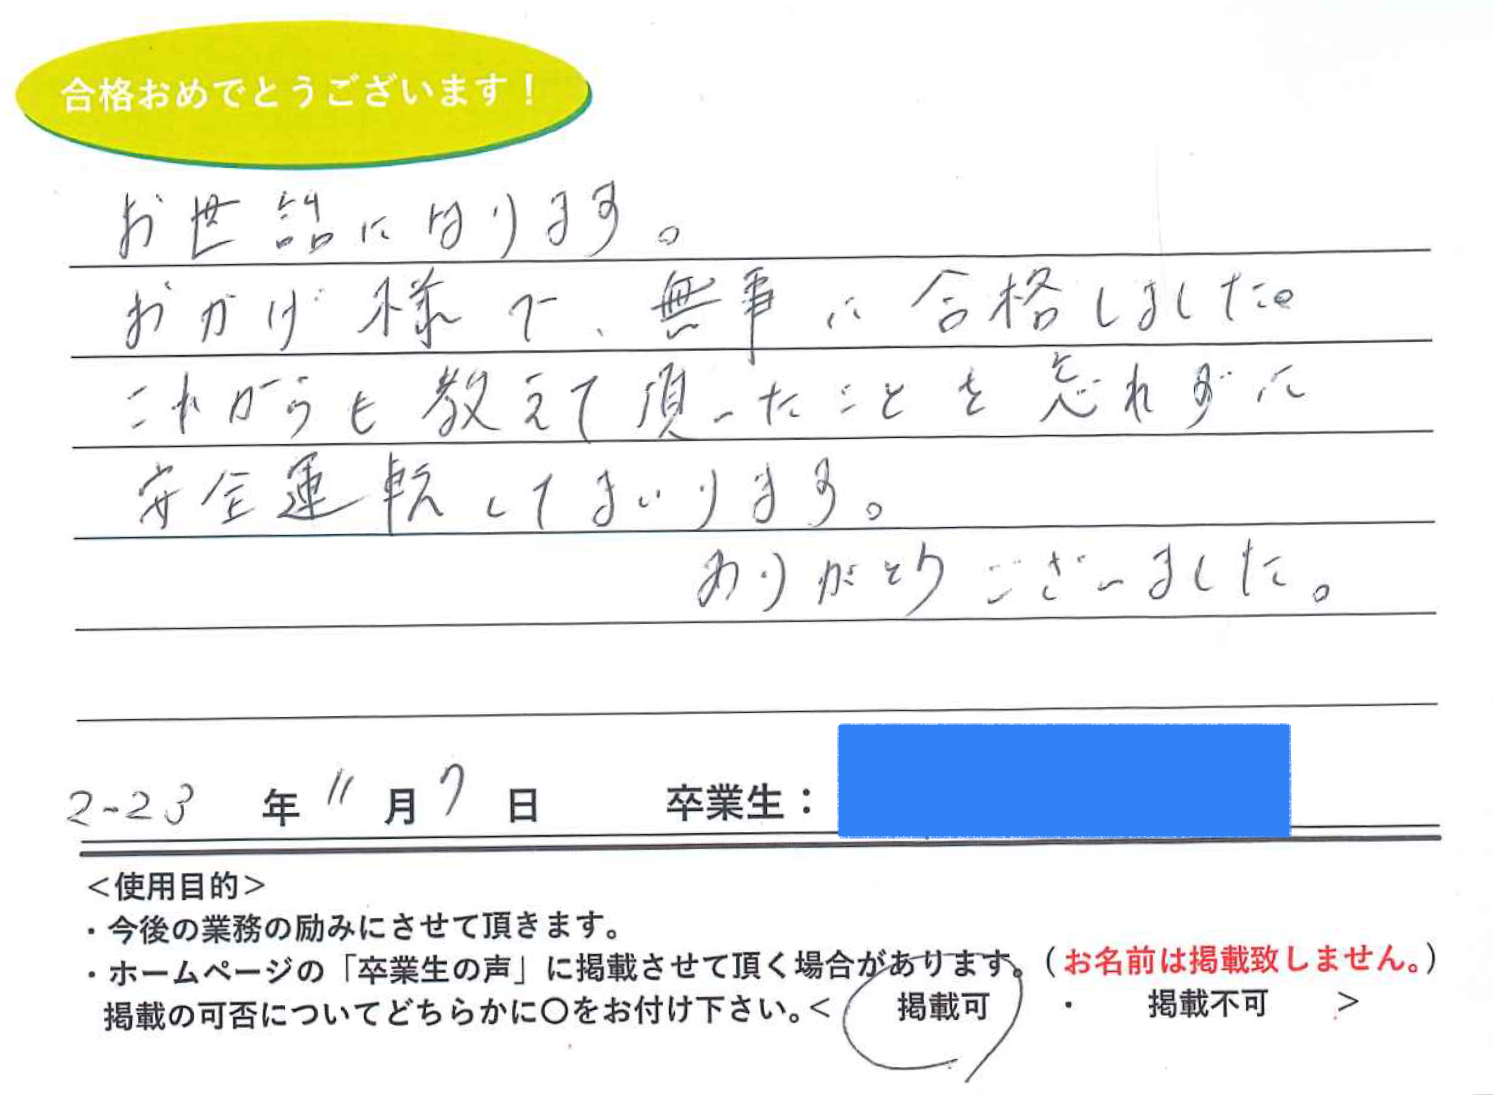 合格おめでとうございます！
お世話になります。
おかげ様で、無事に合格しました。
これからも教えて頂いたことを忘れずに
安全運転してまいります。
ありがとうございました。
2023 年 11 月 7 日 卒業生：
＜使用目的＞
・今後の業務の励みにさせて頂きます。
・ホームページの「卒業生の声」に掲載させて頂く場合があります。（お名前は掲載致しません。）
掲載の可否についてどちらかに〇をお付け下さい。＜ 掲載可 ・ 掲載不可 ＞